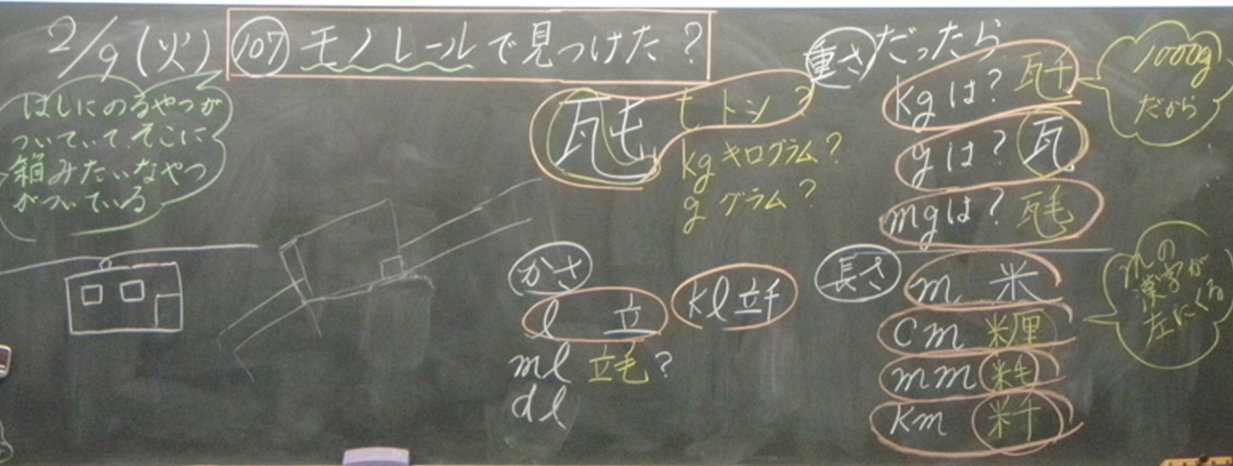 2/9(火) 107 モノレールで見つけた?
はしにのるやつが
ついていて、そこに
箱みたいなやつ
がついている
瓦屯
t トン?
kg キログラム?
g グラム?
かさ
l 立
kl 立千
ml 立毛?
dl
重さだったら
kgは? 瓦千
1000g
だから
gは? 瓦
mgは? 瓦毛
長さ
m 米
cm 米厘
mm 米毛
km 米千
mの
漢字が
左にくる